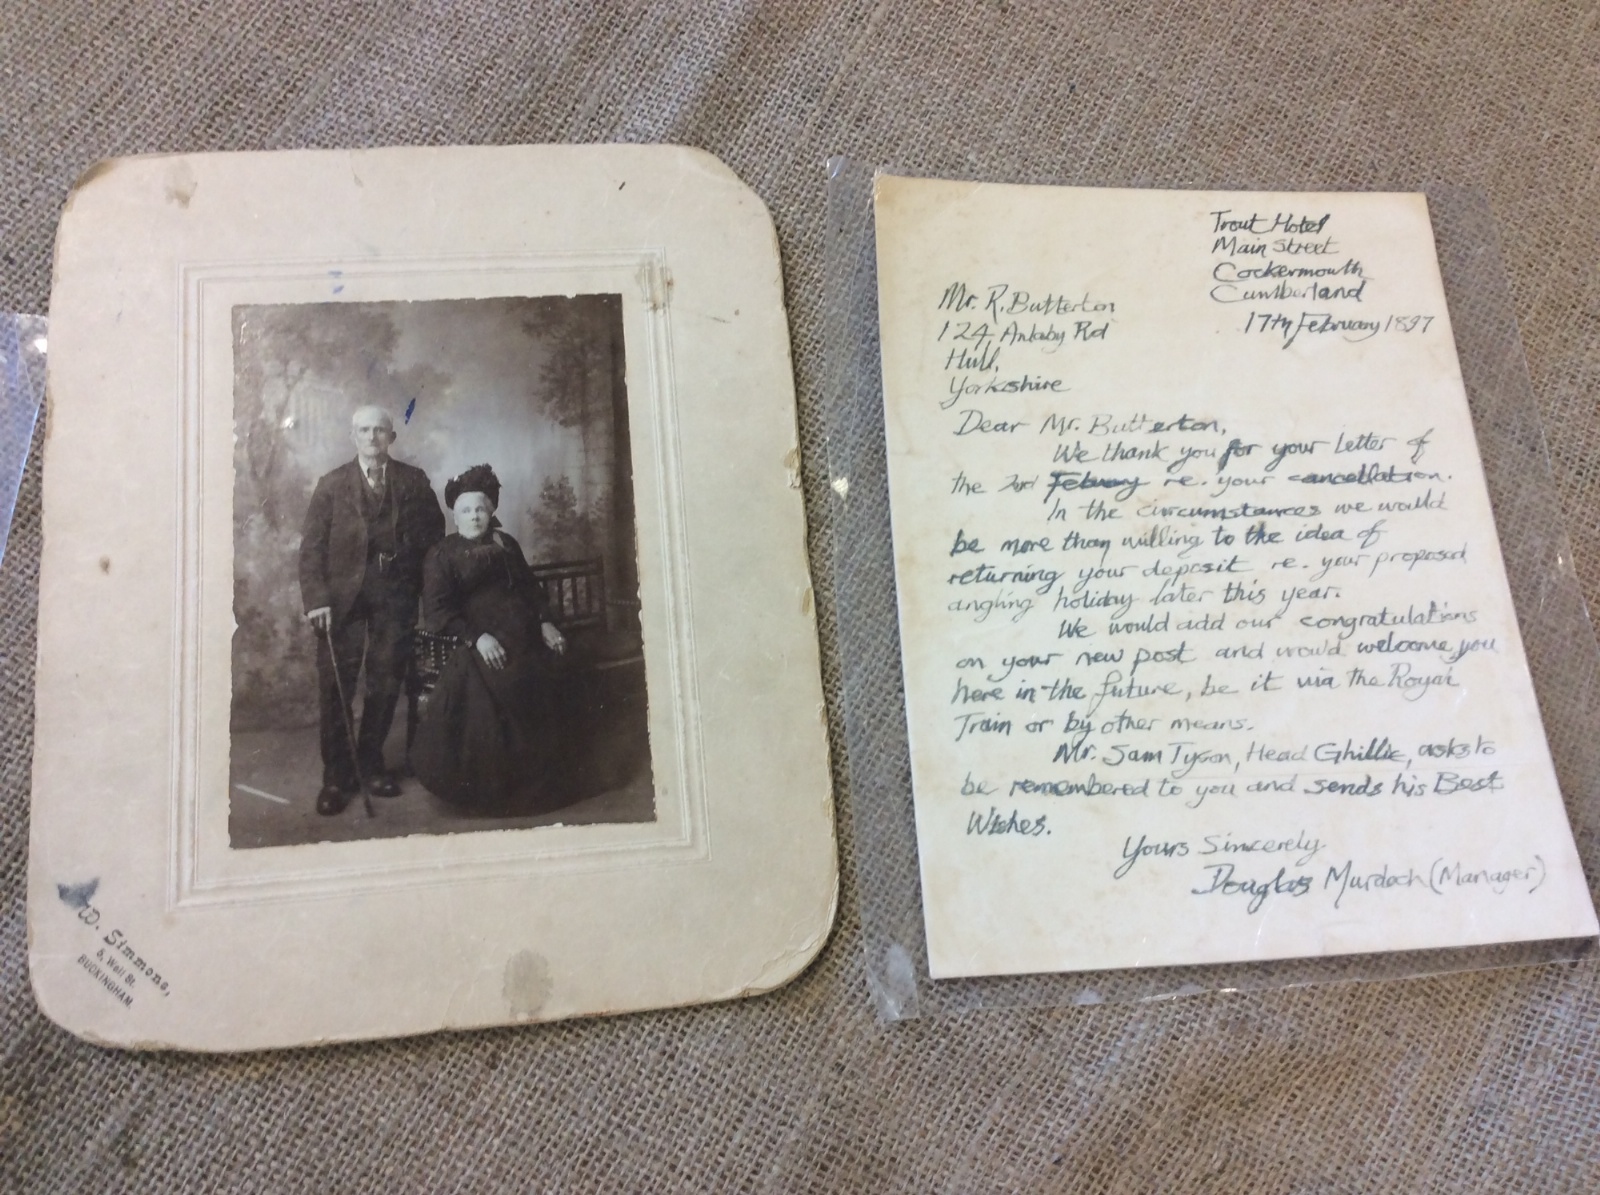 W. Simmons,
5, Well St.
BUCKINGHAM.
Trout Hotel
Main Street
Cockermouth
Cumberland
17th February 1897
Mr. R. Butterton
124, Anlaby Rd
Hull,
Yorkshire
Dear Mr. Butterton,
We thank you for your letter of
the 3rd Febuary re. your cancellation.
In the circumstances we would
be more than willing to the idea of
returning your deposit re. your proposed
angling holiday later this year.
We would add our congratulations
on your new post and would welcome you
here in the future, be it via the Royal
Train or by other means.
Mr. Sam Tyson, Head Ghillie, asks to
be remembered to you and sends his Best
Wishes.
Yours Sincerely.
Douglas Murdoch (Manager)